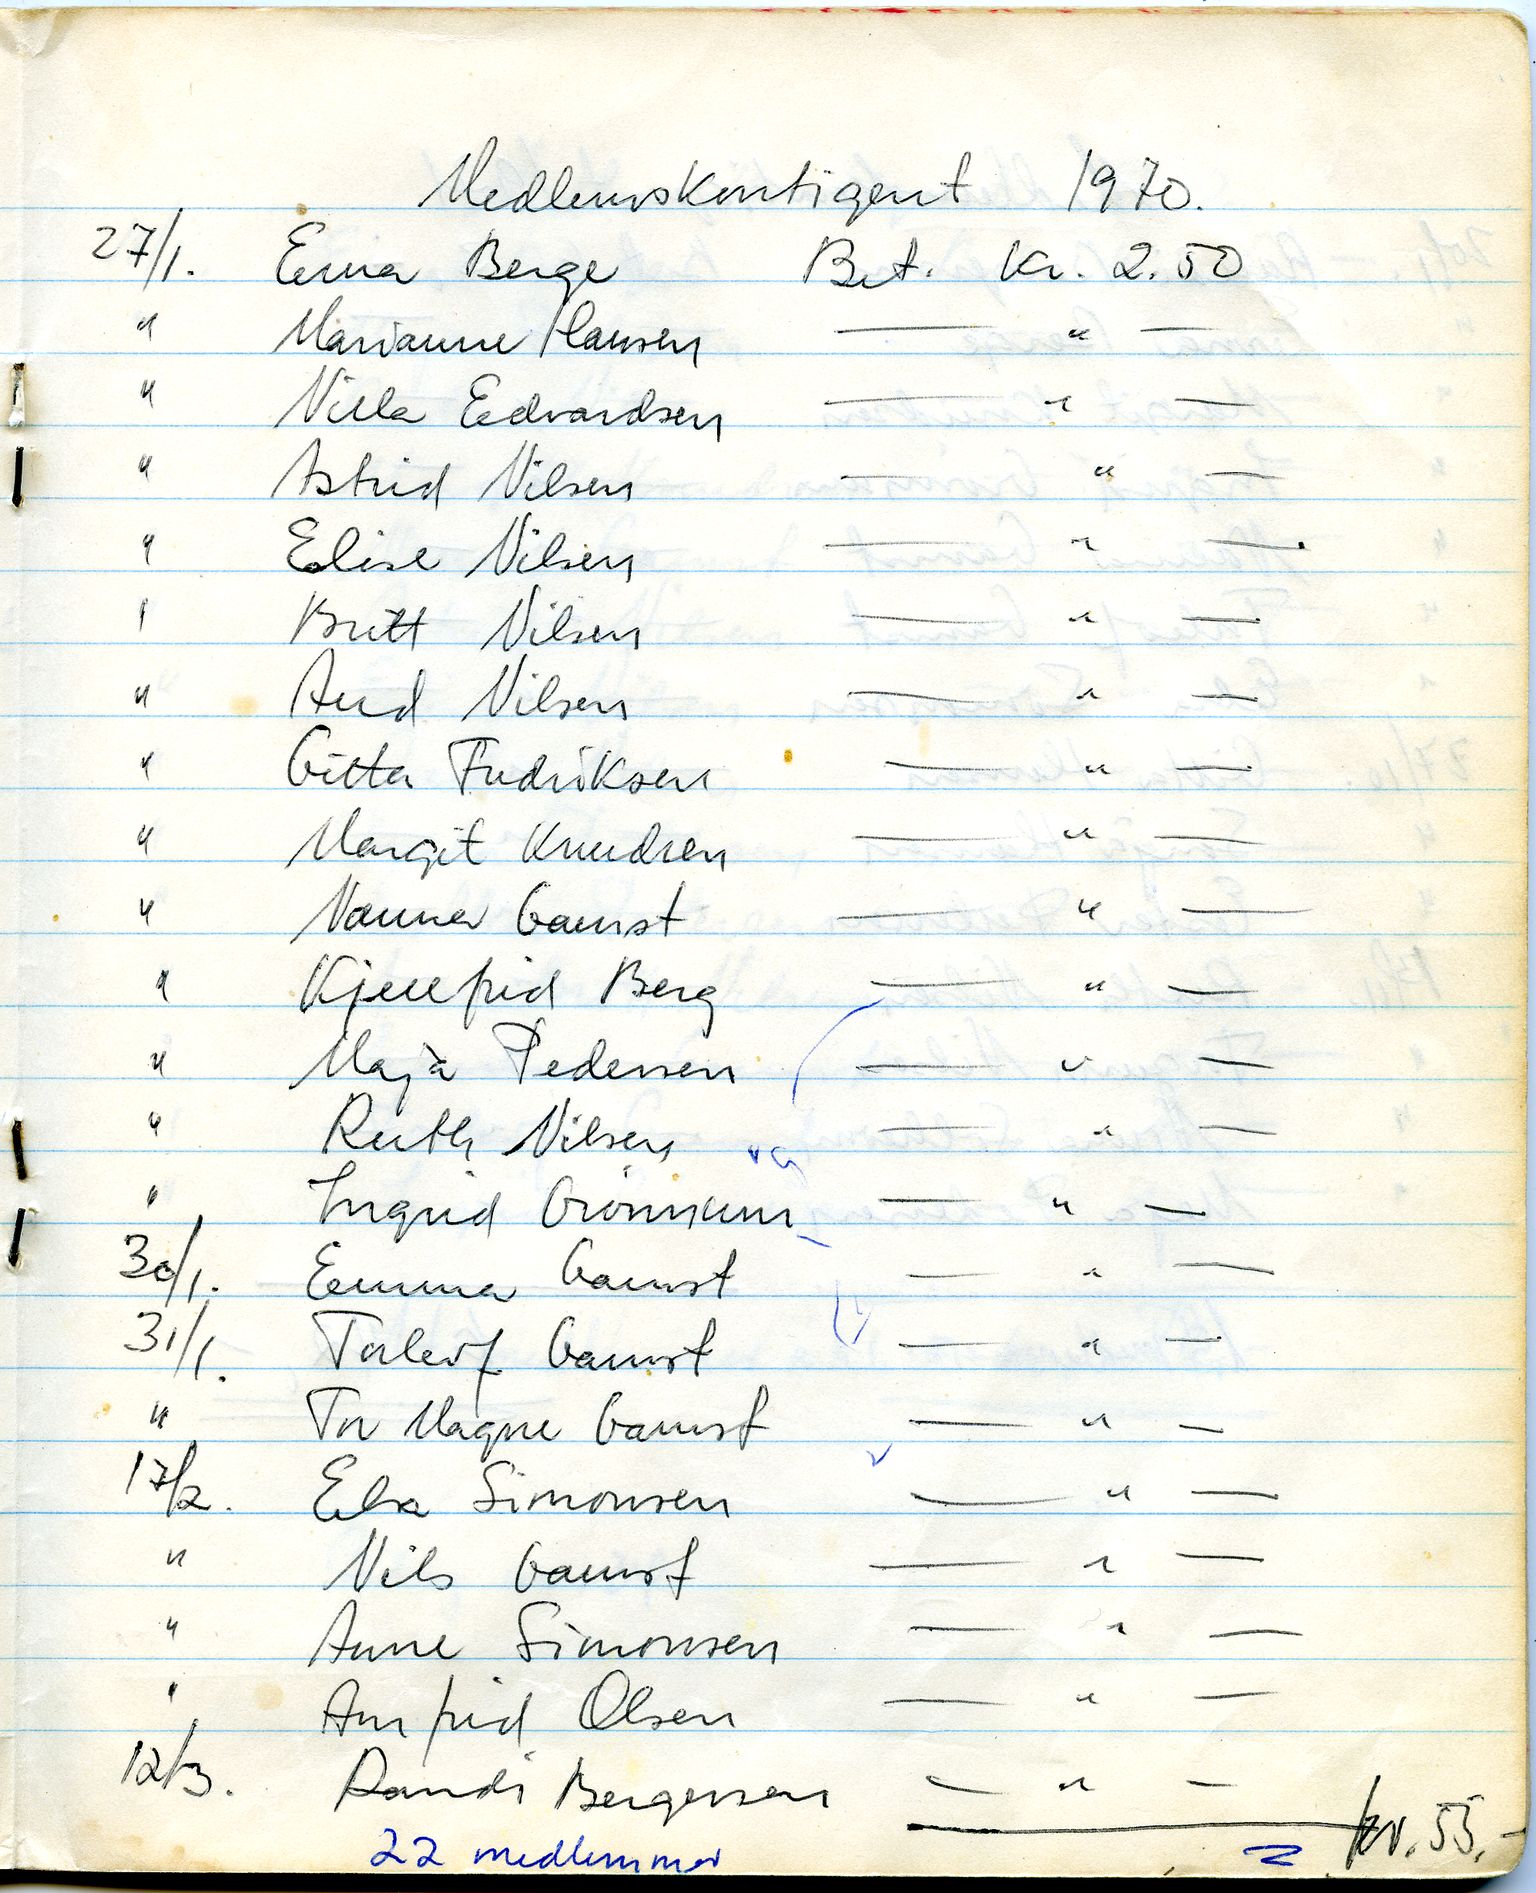 Medlemskontigent 1970.
27/1. Erna Berge Bet. Kr. 2.50
" Marianne Hansen — " —
" Villa Edvardsen — " —
" Astrid Nilsen — " —
" Elise Nilsen — " —
" Britt Nilsen — " —
" Aud Nilsen — " —
" Gitta Fredriksen — " —
" Margit Knudsen — " —
" Nanna Gamst — " —
" Kjellfrid Berg — " —
" Maja Pedersen — " —
" Ruth Nilsen — " —
" Ingrid — " —
30/1. Emma Gamst — " —
31/1. Torleif Gamst — " —
" Tor Magne Gamst — " —
17/2. Elsa Simonsen — " —
" Nils Gamst — " —
" Anne Simonsen — " —
" Arnfrid Olsen — " —
12/3. Randi Bergersen — " —
22 medlemmer kr. 55,-